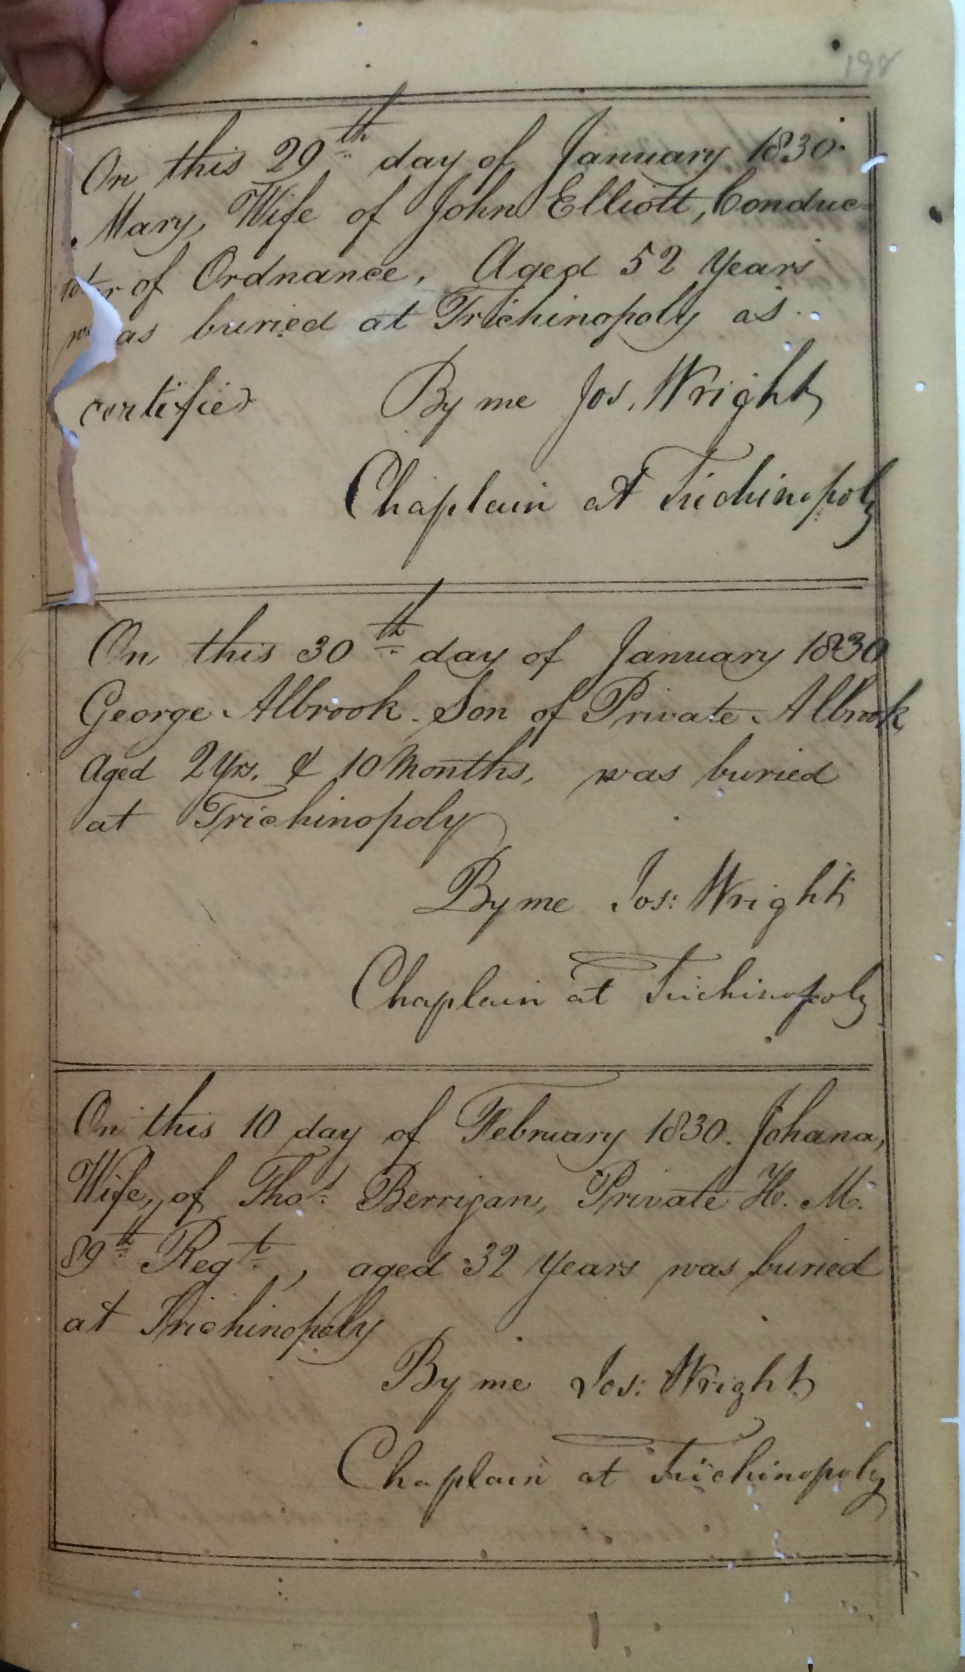 198
On this 29th day of January 1830.
Mary, Wife of John Elliott, Conduc-
tor of Ordnance. Aged 52 Years
was buried at Trichinopoly as
certified By me Jos. Wright
Chaplain at Trichinopoly
On this 30th day of January 1830
George Albrook. Son of Private Albrook
Aged 2 Yrs. & 10 Months, was buried
at Trichinopoly
By me Jos: Wright
Chaplain at Trichinopoly
On this 10 day of February 1830. Johana,
Wife, of Thos. Berrigan, Private H. M.
89th Regt, aged 32 Years was buried
at Trichinopoly
By me Jos: Wright
Chaplain at Trichinopoly